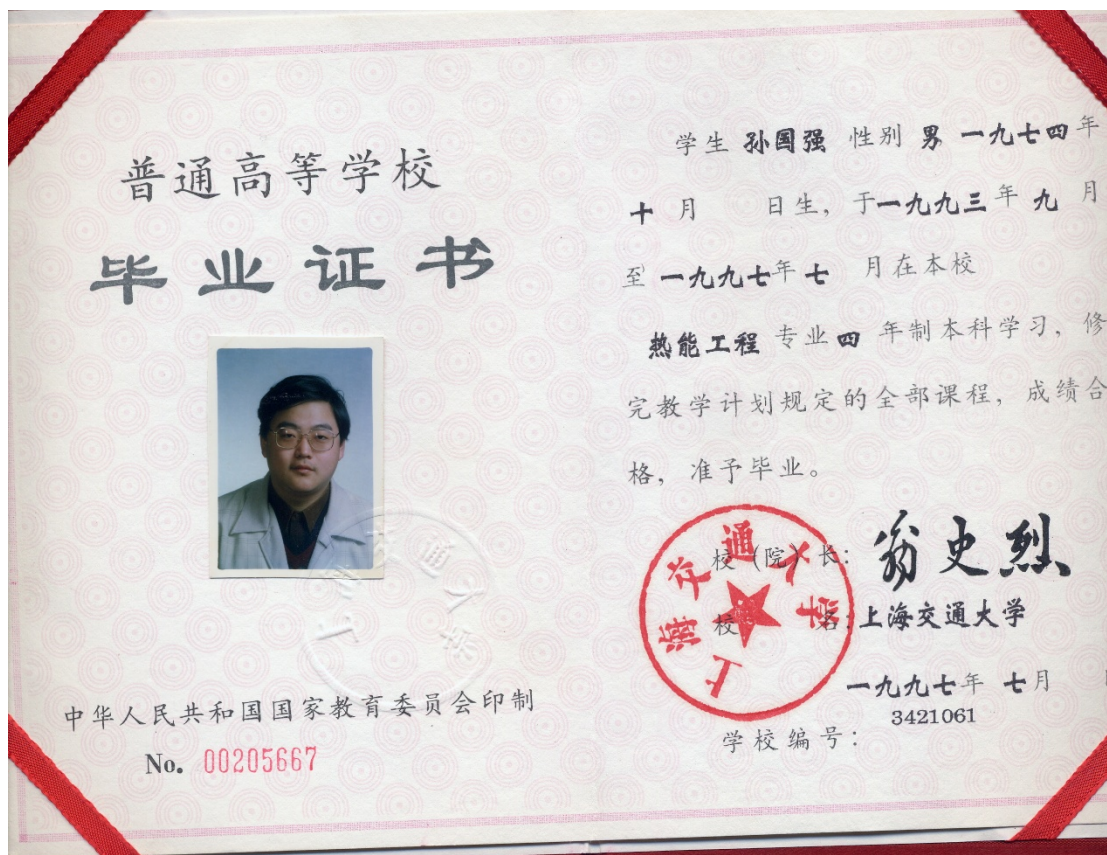 普通高等学校
毕业证书
中华人民共和国国家教育委员会印制
No. 00205667
学生 孙国强 性别 男 一九七四年
十 月 日生，于一九九三年 九 月
至 一九九七年 七 月在本校
热能工程 专业四 年制本科学习，修
完教学计划规定的全部课程，成绩合
格，准予毕业。
校（院）长：翁史烈
校 名：上海交通大学
上海交通大学
一九九七年 七月
学校编号：3421061